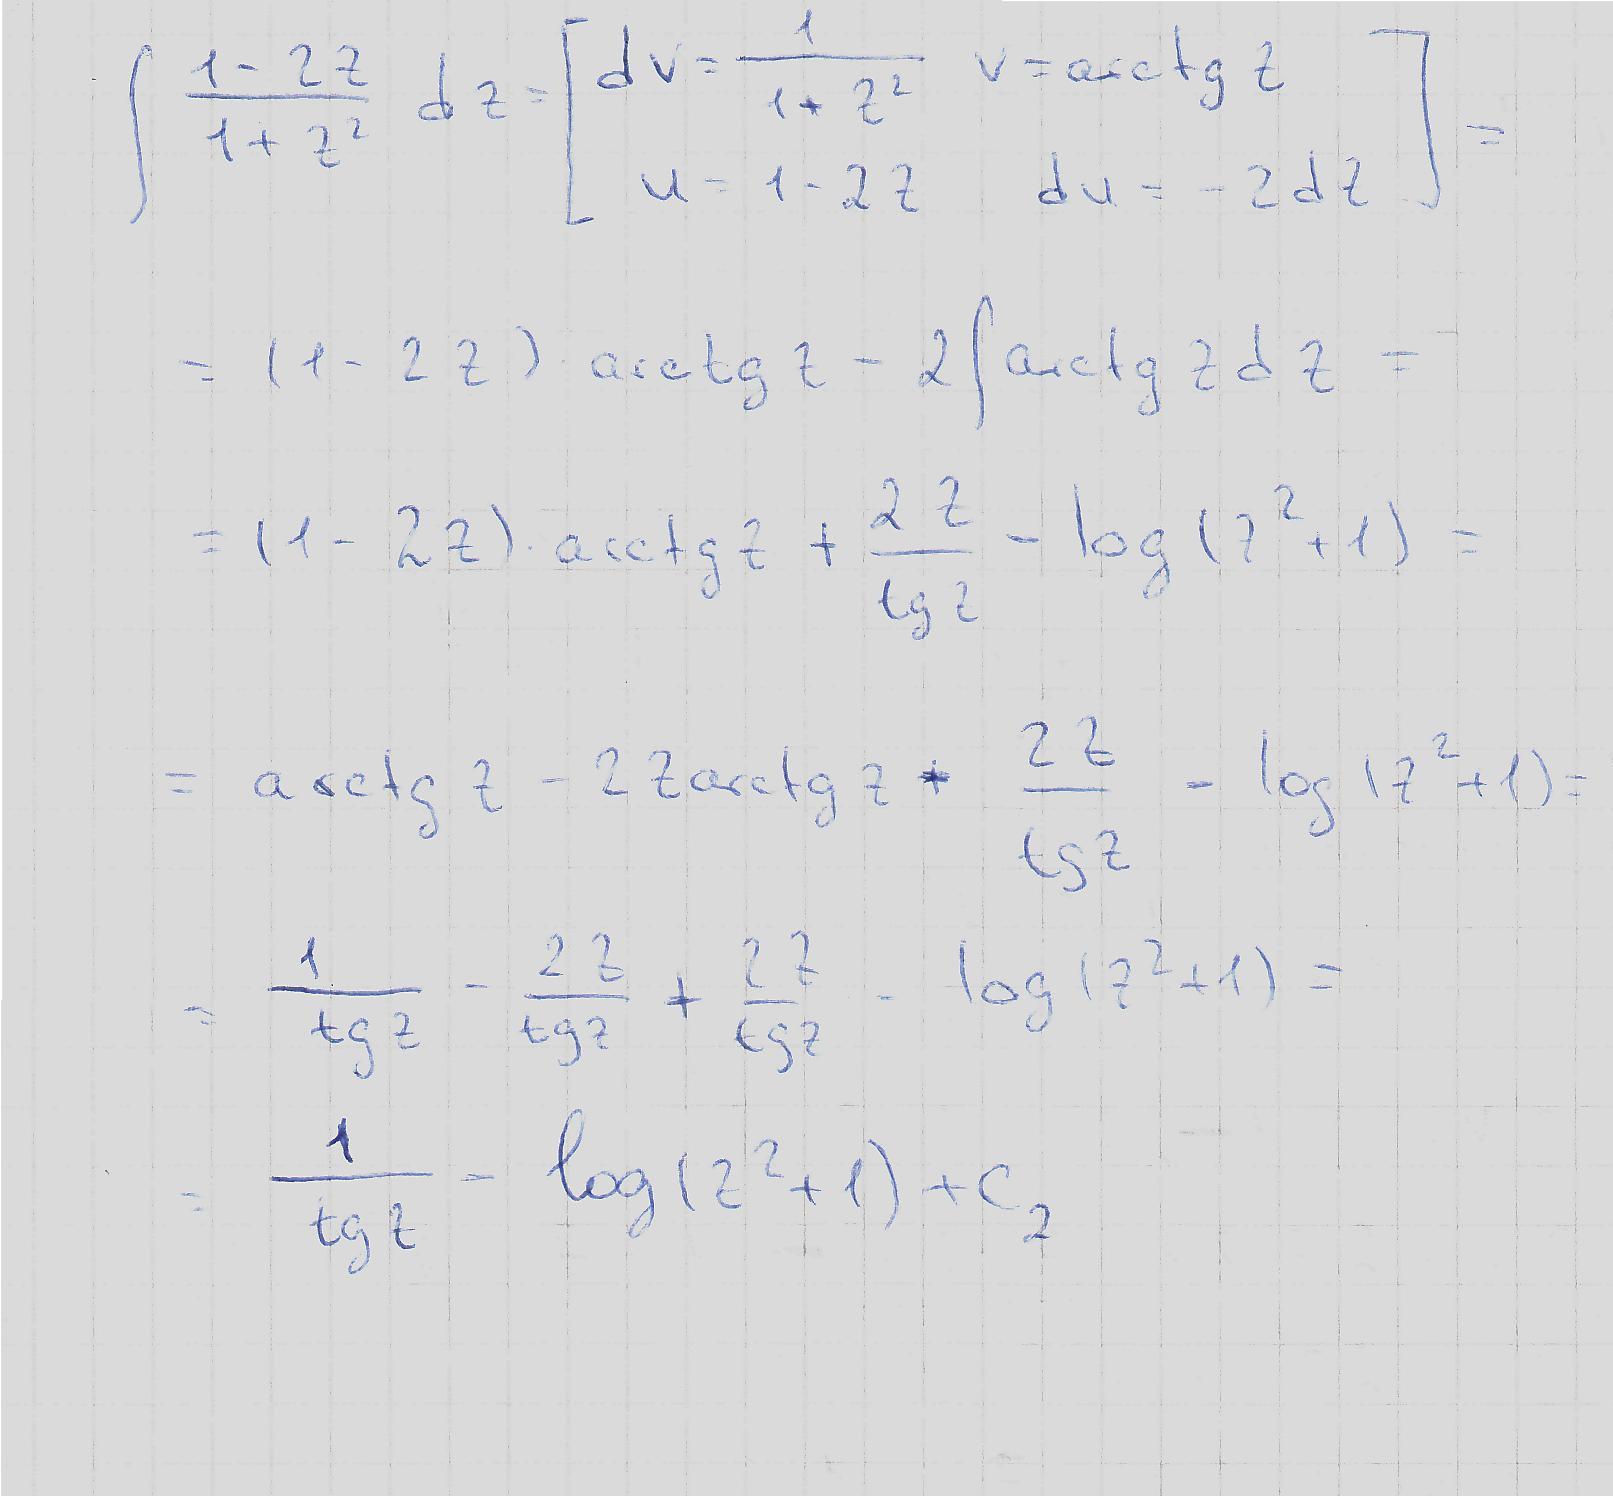 ∫ (1-2z)/(1+z²) dz = [ dv = 1/(1+z²) v = arctg z
u = 1-2z du = -2dz ] =
= (1-2z)·arctg z - 2∫arctg z dz =
= (1-2z)·arctg z + 2z/(tg z) - log(z²+1) =
= arctg z - 2z arctg z + 2z/(tg z) - log(z²+1) =
= 1/(tg z) - 2z/(tg z) + 2z/(tg z) - log(z²+1) =
= 1/(tg z) - log(z²+1) + c₂